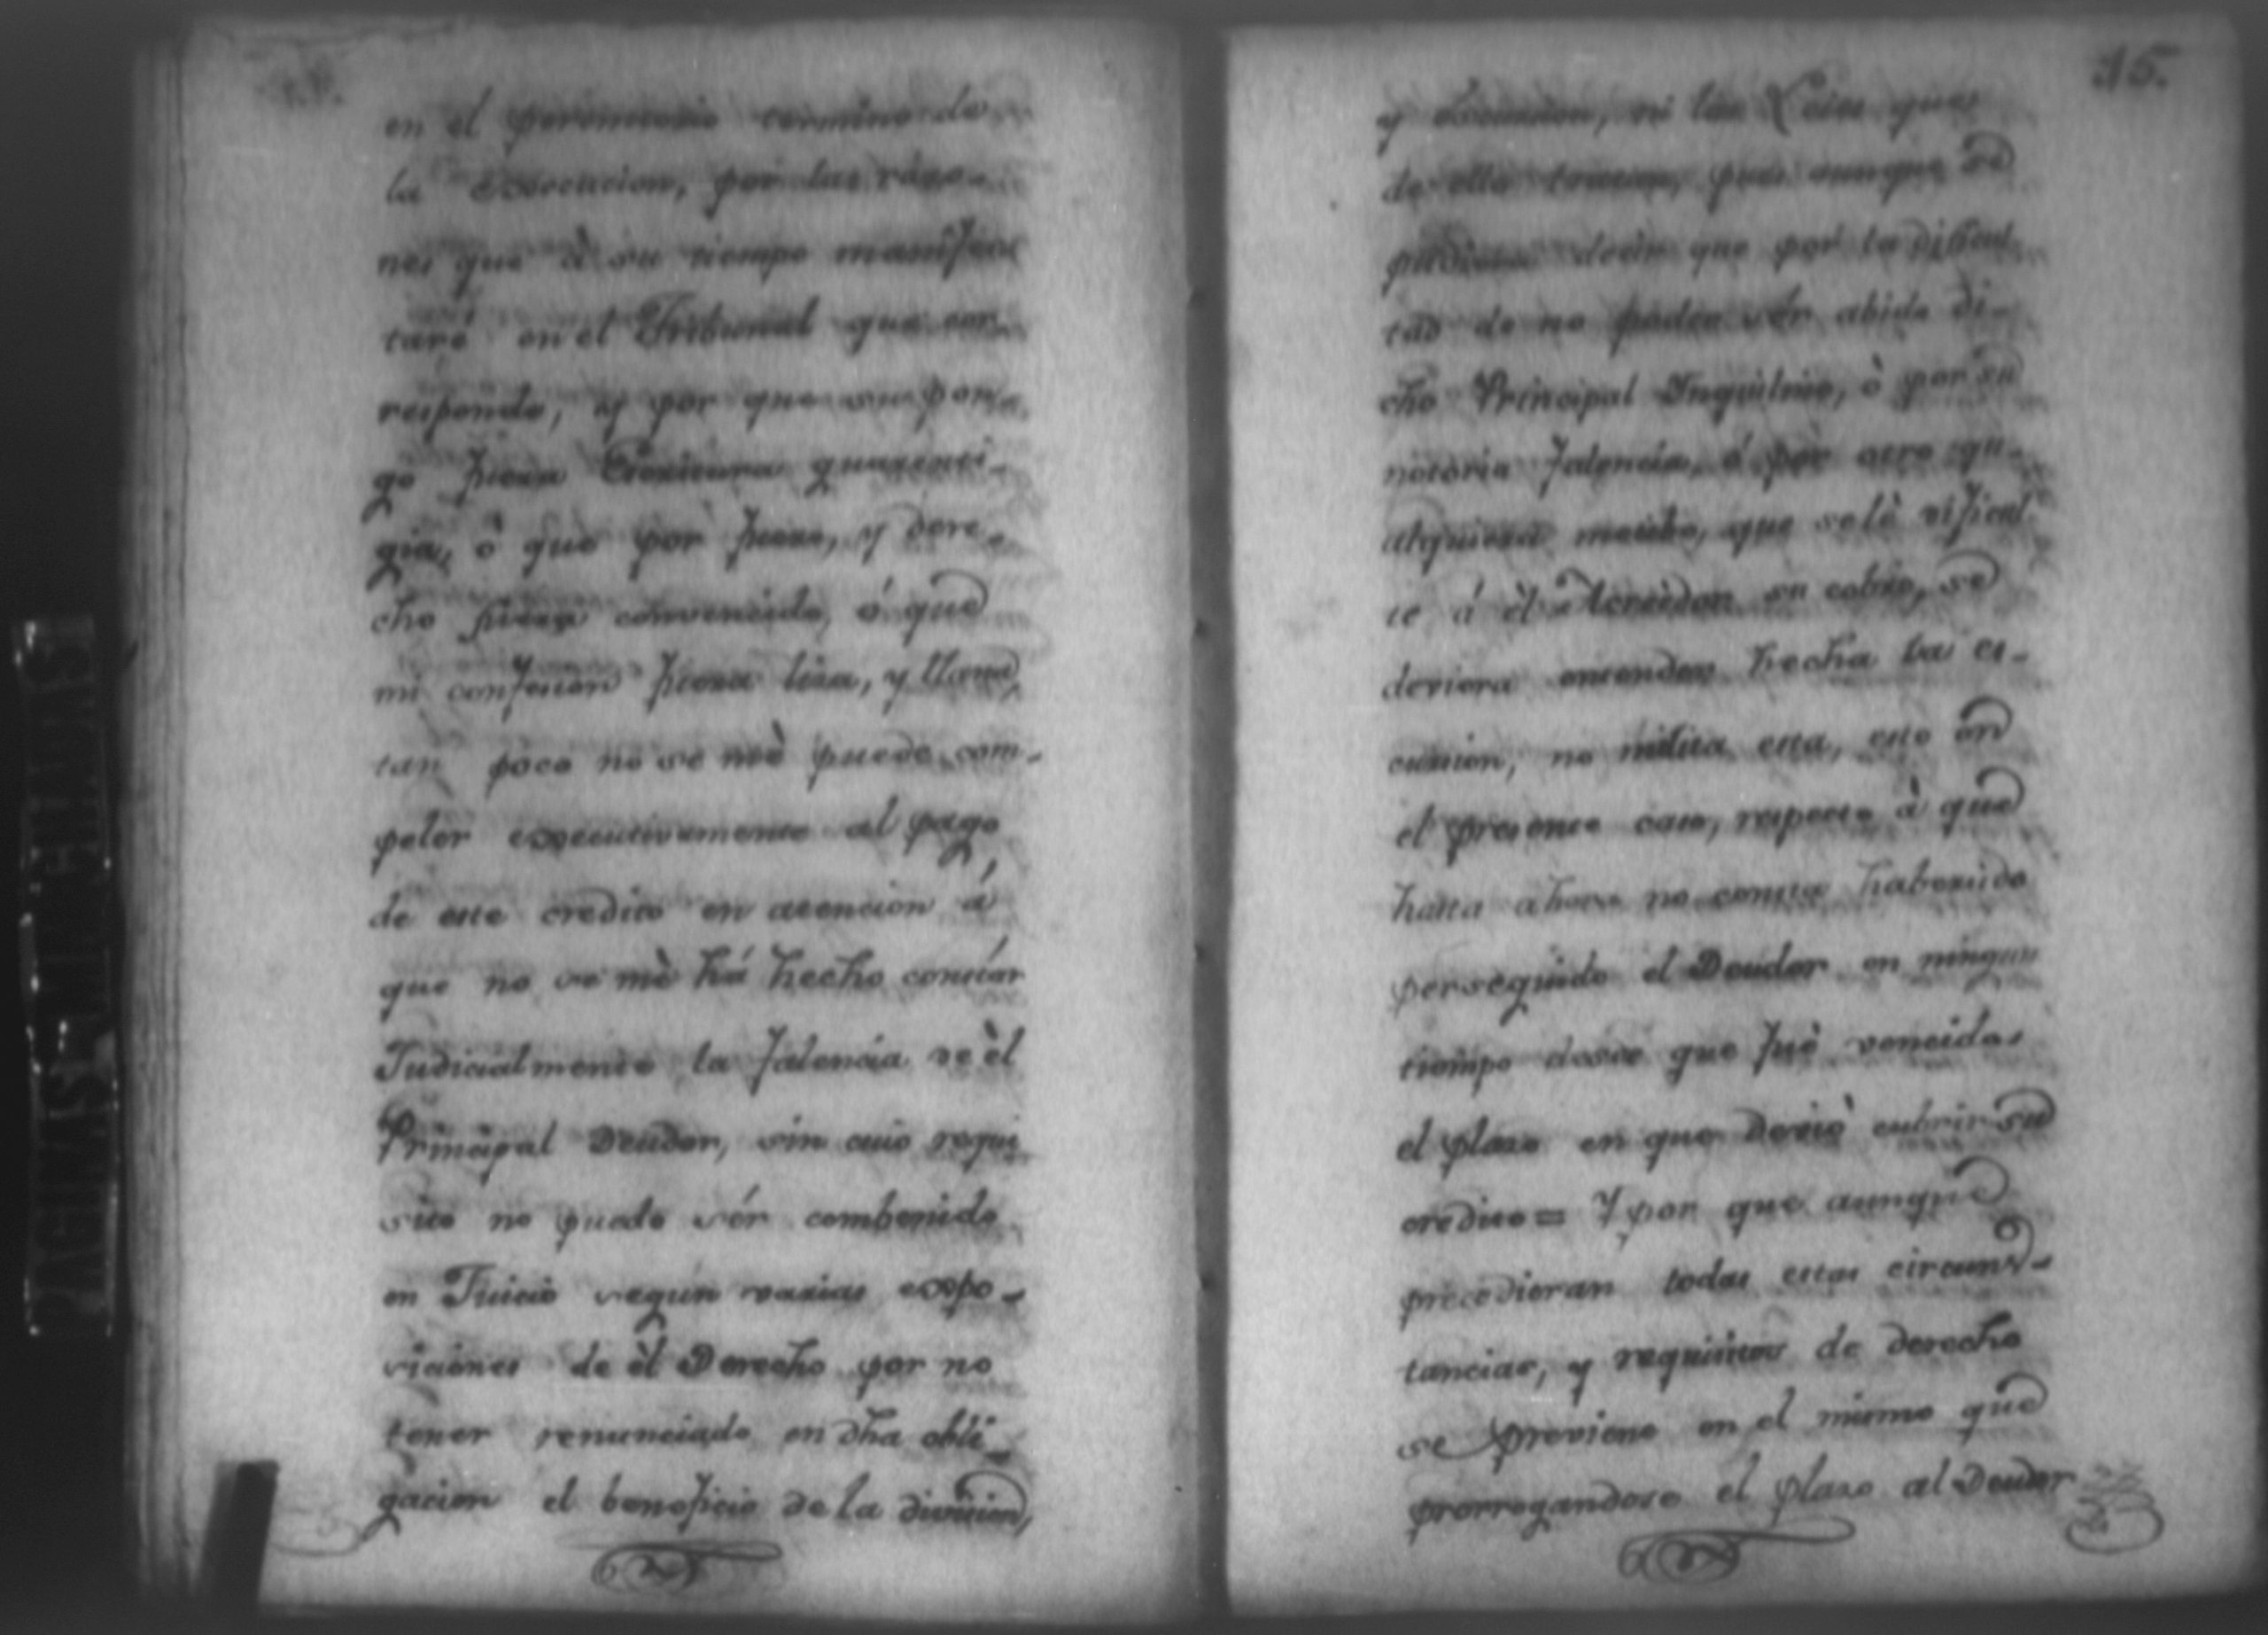 en el perentorio termino de
la Execucion, por las razo-
nes que à su tiempo manifes
taré en el Tribunal que cor-
responda, y por que supon-
go fuera Escritura guarenti-
gia, ò que por fuero, y dere-
cho fuera convencido, ó que
mi confesion fuera liza, y llana,
tan poco no se mè puede com-
peler executivamente al pago,
de este credito en atencion á
que no se mè há hecho constar
Judicialmente la falencia de èl
Principal Deudor, sin cuio requi
sito no puedo sér combenido
en Juicio segun varias expo-
siciones de èl Derecho por no
tener renunciado en dha obli-
gacion el beneficio de la division,
15.
y escusion, ni las Leies que
de ello tratan, pues aunque se
pudiera decir que por la dificul-
tad de no poder sér abido di-
cho Principal Inquilino, ò por su
notoria falencia, ó por otro qu-
alquiera motibo, que se lè dificul
te á èl Acreedor su cobro, se
deviera entender hecha la es-
cusion, no milita esta, esto en
el presente caso, respecto à que
hasta ahora no consta habersido
perseguido el Deudor en ningun
tiempo desde que fuè vencido
el plazo en que deviò cubrir su
credito = Y por que aunque
precedieran todas estas circuns-
tancias, y requisitos de derecho
se previene en el mismo que
prorrogandose el plazo al Deudor
PAGINAS INTERCALADAS